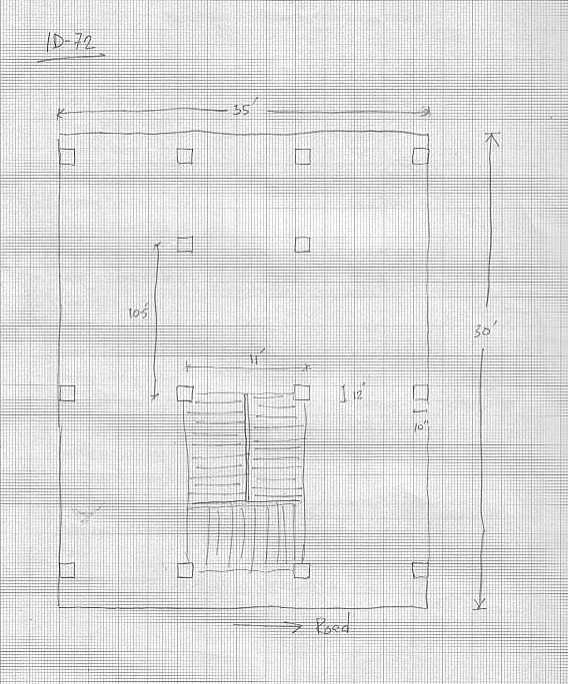 ID-72
35'
10.5'
30'
11'
12"
10"
Road